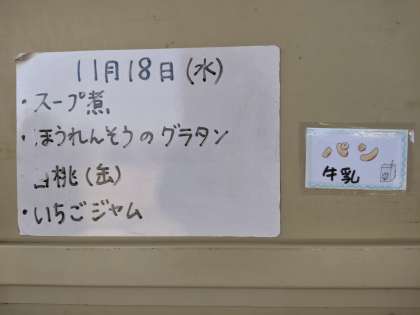 11月18日(水)
・スープ煮
・ほうれんそうのグラタン
白桃(缶)
・いちごジャム
パン
牛乳